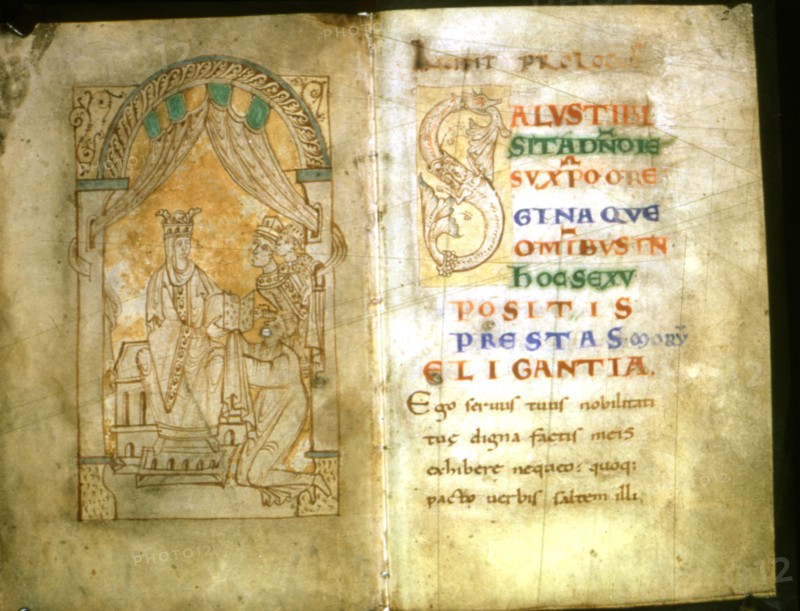 Incipit prologus
SALUSTIBI
SIT A DÑO IE
SU XPO O RE
GINA QUE
OMIBUS IN
HOC SEXU
POSITIS
PRESTAS MORŪ
ELIGANTIA.
Ego servus tuus nobilitati
tuę digna factis meis
exhibere nequeo: quoq;
pacto verbis saltem illi.